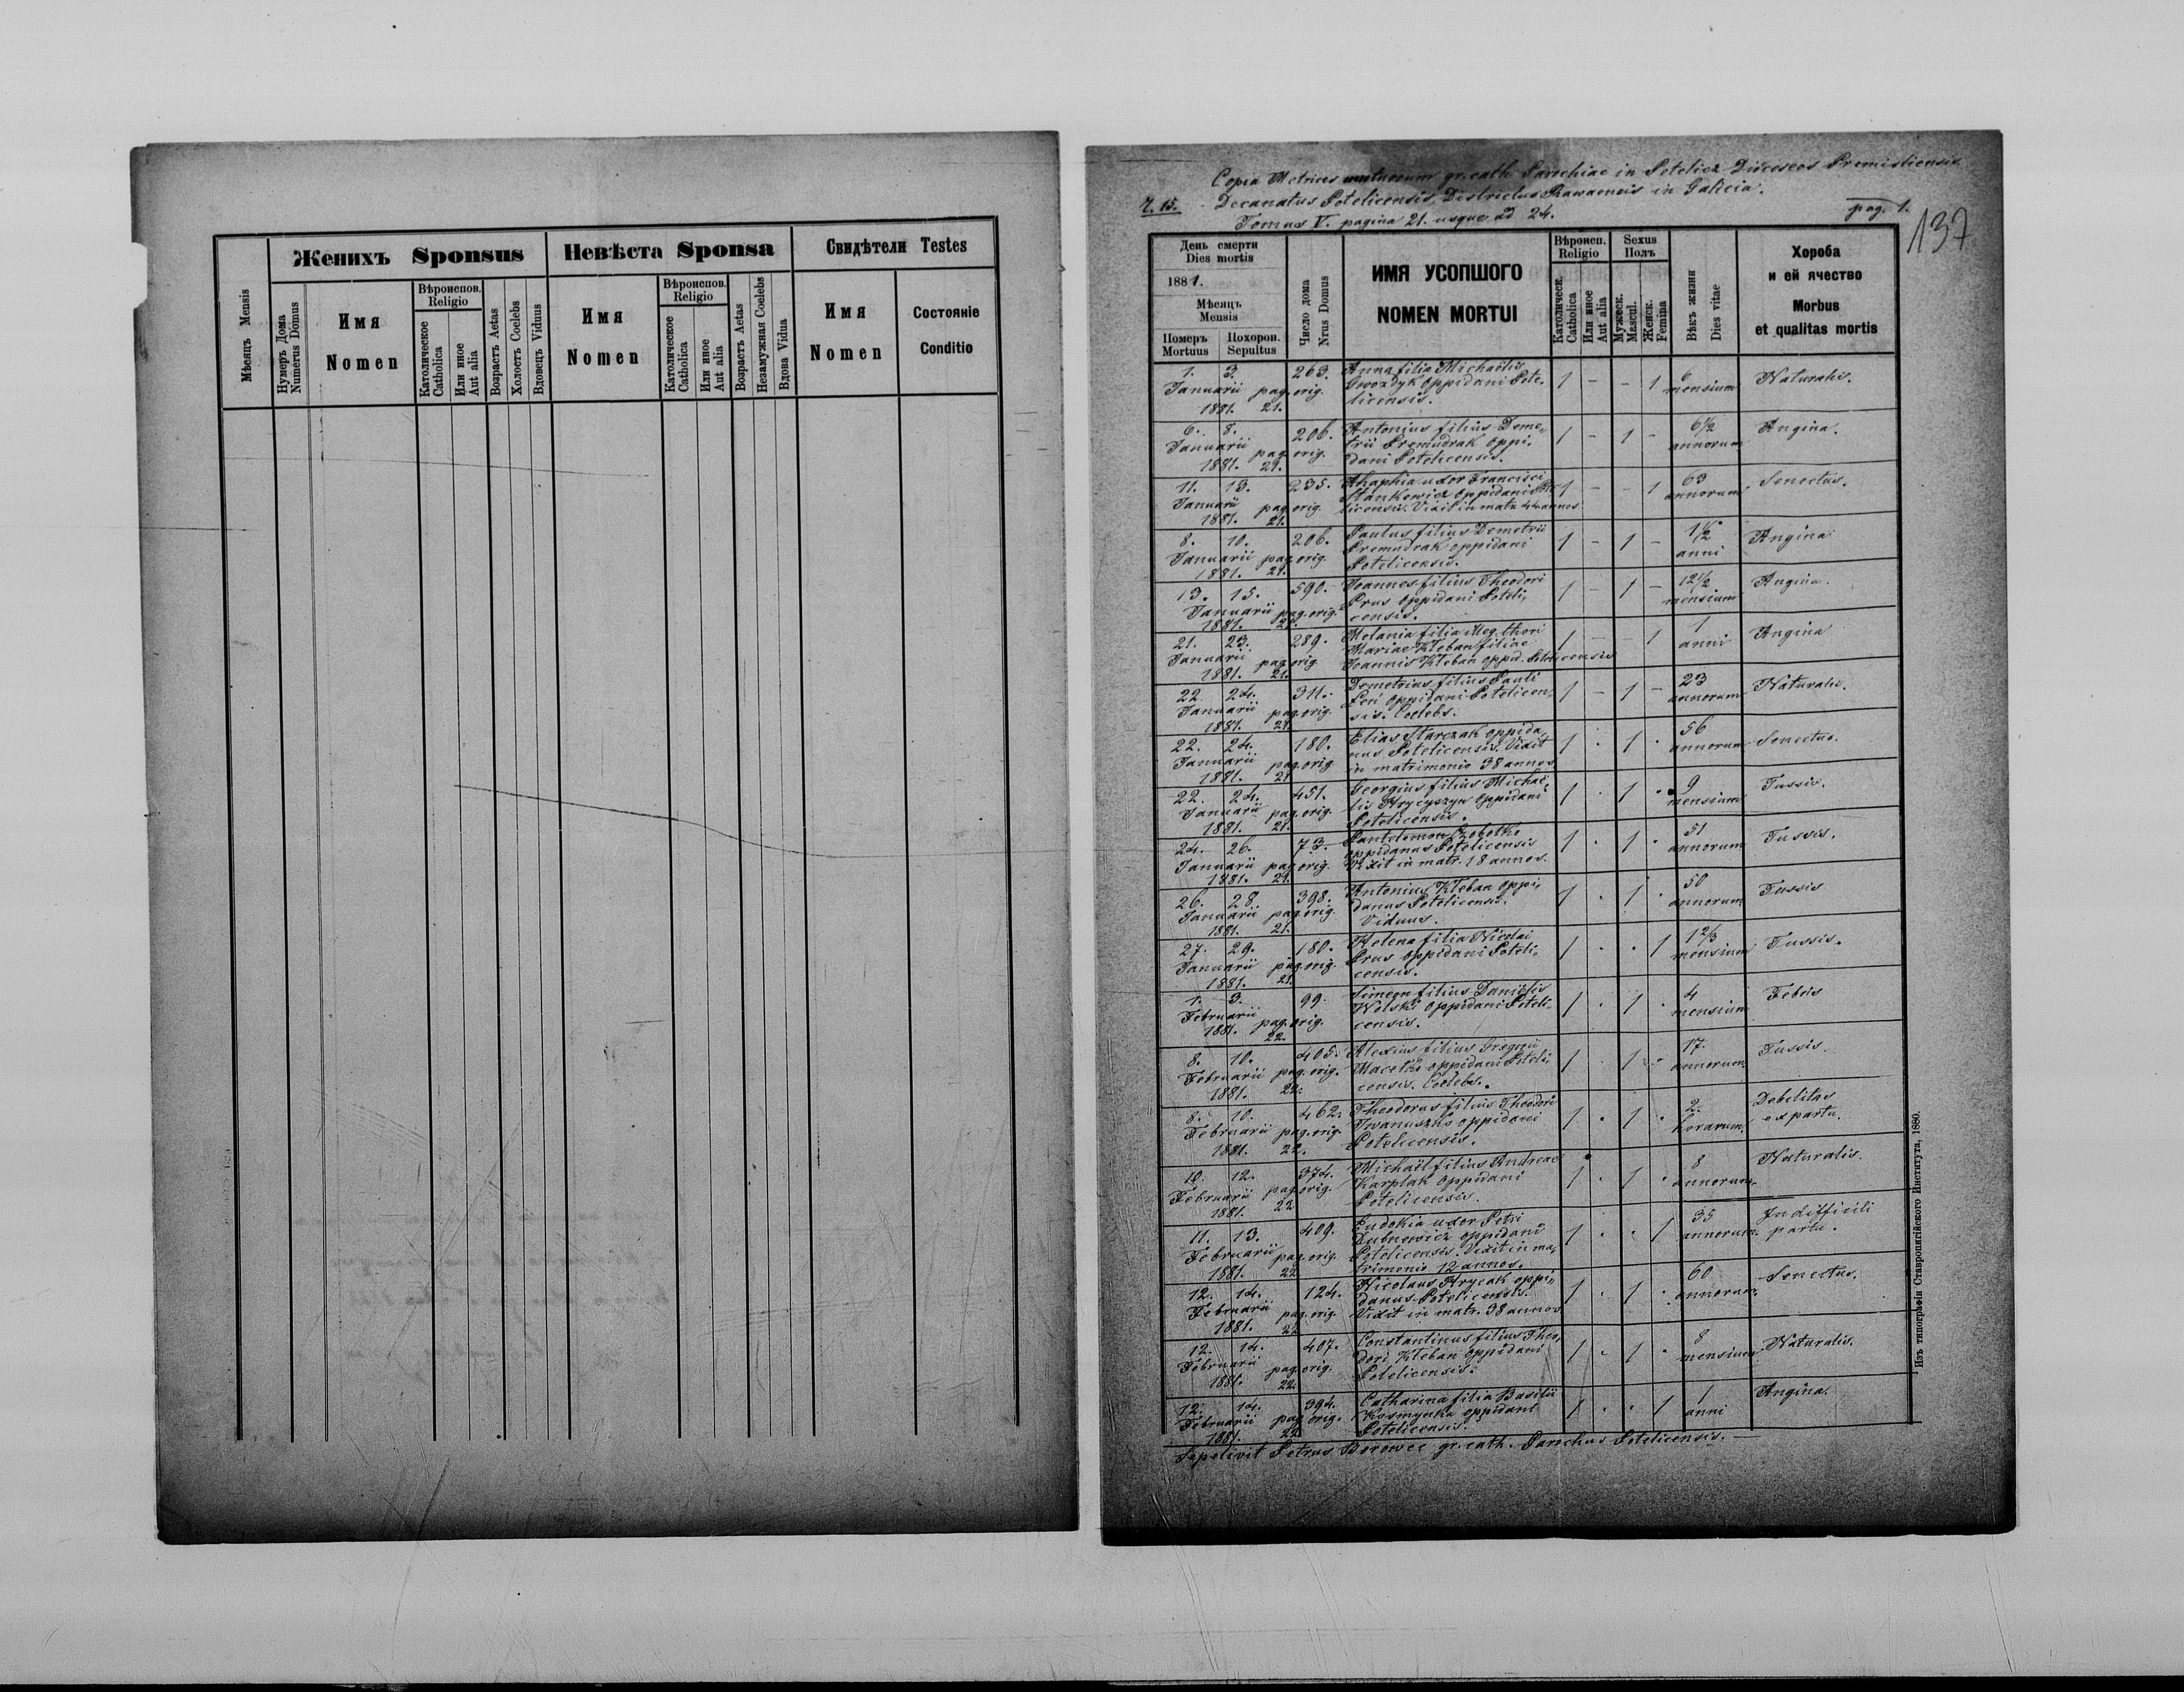 Женихъ Sponsus
Невѣста Sponsa
Свидѣтели Testes
Мѣсяцъ Mensis
Нумеръ Дома
Numerus Domus
Имя
Nomen
Вѣроиспов.
Religio
Католическое
Catholica
Или иное
Aut alia
Возрастъ Aetas
Холостъ Coelebs
Вдовецъ Viduus
Имя
Nomen
Вѣроиспов.
Religio
Католическое
Catholica
Или иное
Aut alia
Возрастъ Aetas
Незамужная Coelebs
Вдова Vidua
Имя
Nomen
Состоянiе
Conditio
Copia Metrices mortuorum gr. cath. Parochiae in Potelicz Dioceseos Premisliensis
Decanatus Potelicensis, Districtus Rawaensis in Galicia.
Tomus V. pagina 21. usque ad 24.
pag. 1.
137
День смерти
Dies mortis
1881.
Мѣсяцъ
Mensis
Померъ
Mortuus
Похорон.
Sepultus
Число дома
Nrus Domus
ИМЯ УСОПШОГО
NOMEN MORTUI
Вѣроисп.
Religio
Католическ.
Catholica
Или иное
Aut alia
Sexus
Полъ
Мужеск.
Mascul.
Женск.
Femina
Вѣкъ жизни
Dies vitae
Хороба
и ей ячество
Morbus
et qualitas mortis
1. 3. 263. Anna filia Michaëlis 1 - - 1 6 Naturalis.
Januarii pag. orig. Gwozdyk oppidani Pote- mensium
1881. 21. licensis.
6. 8. 206. Antonius filius Deme- 1 - 1 - 6 1/2 Angina.
Januarii pag. orig. trii Premudrak oppi- annorum
1881. 21. dani Potelicensis.
11. 13. 235. Rhaphia uxor Francisci 1 - - 1 63 Senectus.
Januarii pag. orig. Stankewicz oppidani Pote- annorum
1881. 21. licensis. Vixit in matr. 44 annos
8. 10. 206. Paulus filius Demetrii 1 - 1 - 1 1/2 Angina
Januarii pag. orig. Premudrak oppidani anni
1881. 21. Potelicensis.
13. 15. 590. Joannes filius Theodori 1 - 1 - 12 1/2 Angina.
Januarii pag. orig. Prus oppidani Poteli- mensium
1881. 21. censis.
21. 23. 289. Melania filia illeg. thori 1 - - 1 1 Angina
Januarii pag. orig. Mariae Kłeban filiae anni
1881. 21. Joannis Kłeban oppid. Potelicensis
22. 24. 311. Demetrius filius Pauli 1 - 1 - 23 Naturalis.
Januarii pag. orig. oppidani Potelicen- annorum
1881. 21. sis. Coelebs.
22. 24. 180. Elias Starczak oppida- 1 . 1 . 56 Senectus.
Januarii pag. orig. nus Potelicensis. Vixit annorum
1881. 21. in matrimonio 38 annos
22. 24. 451. Georgius filius Michaë- 1 . 1 . 9 Tussis.
Januarii pag. orig. lis Hrycyszyn oppidani mensium
1881. 21. Potelicensis.
24. 26. 73. Pantelemon Czobotko 1 . 1 . 51 Tussis.
Januarii pag. orig. oppidanus Potelicensis annorum
1881. 21. Vixit in matr. 18 annos.
26. 28. 398. Antonius Kłeban oppi- 1 . 1 . 50 Tussis
Januarii pag. orig. danus Potelicensis. annorum
1881. 21. Viduus.
27. 29. 180. Helena filia Nicolai 1 . . 1 1 2/3 Tussis.
Januarii pag. orig. Prus oppidani Poteli- mensium
1881. 21. censis.
1. 3. 99. Simeon filius Daniëlis 1 . 1 . 4 Febris
Februarii pag. orig. Wolski oppidani Poteli- mensium
1881. 22. censis.
8. 10. 405. Alexius filius Gregorii 1 . 1 . 17. Tussis.
Februarii pag. orig. oppidani Poteli- annorum
1881. 22. censis. Coelebs.
8. 10. 462. Theodorus filius Theodori 1 . 1 . 2. Debilitas
Februarii pag. orig. Iwanuszko oppidani horarum. ex partu.
1881. 22. Potelicensis.
10. 12. 374. Michaël filius Andreae 1 . 1 . 8 Naturalis.
Februarii pag. orig. Karplak oppidani annorum.
1881. 22 Potelicensis.
11. 13. 409. Eudokia uxor Petri 1 . . 1 35 In difficili
Februarii pag. orig. Dubnewicz oppidani annorum. partu.
1881. 22 Potelicensis. Vixit in ma-
trimonio 12 annos.
12. 14. 124. Nicolaus Hrycak oppi- 1 . 1 . 60 Senectus.
Februarii pag. orig. danus Potelicensis. annorum.
1881. 22 Vixit in matr. 38 annos
12. 14. 407. Constantinus filius Theo- 1 . 1 . 8 Naturalis.
Februarii pag. orig. dori Kłeban oppidani mensium
1881. 22. Potelicensis.
12. 14. 394. Catharina filia Basilii 1 . . 1 1 Angina.
Februarii pag. orig. Kosmynka oppidani anni
1881. 22. Potelicensis.
Sepelivit Petrus Borowec gr. cath. Parochus Potelicensis.
Изъ типографiи Ставропигiйского Института, 1880.